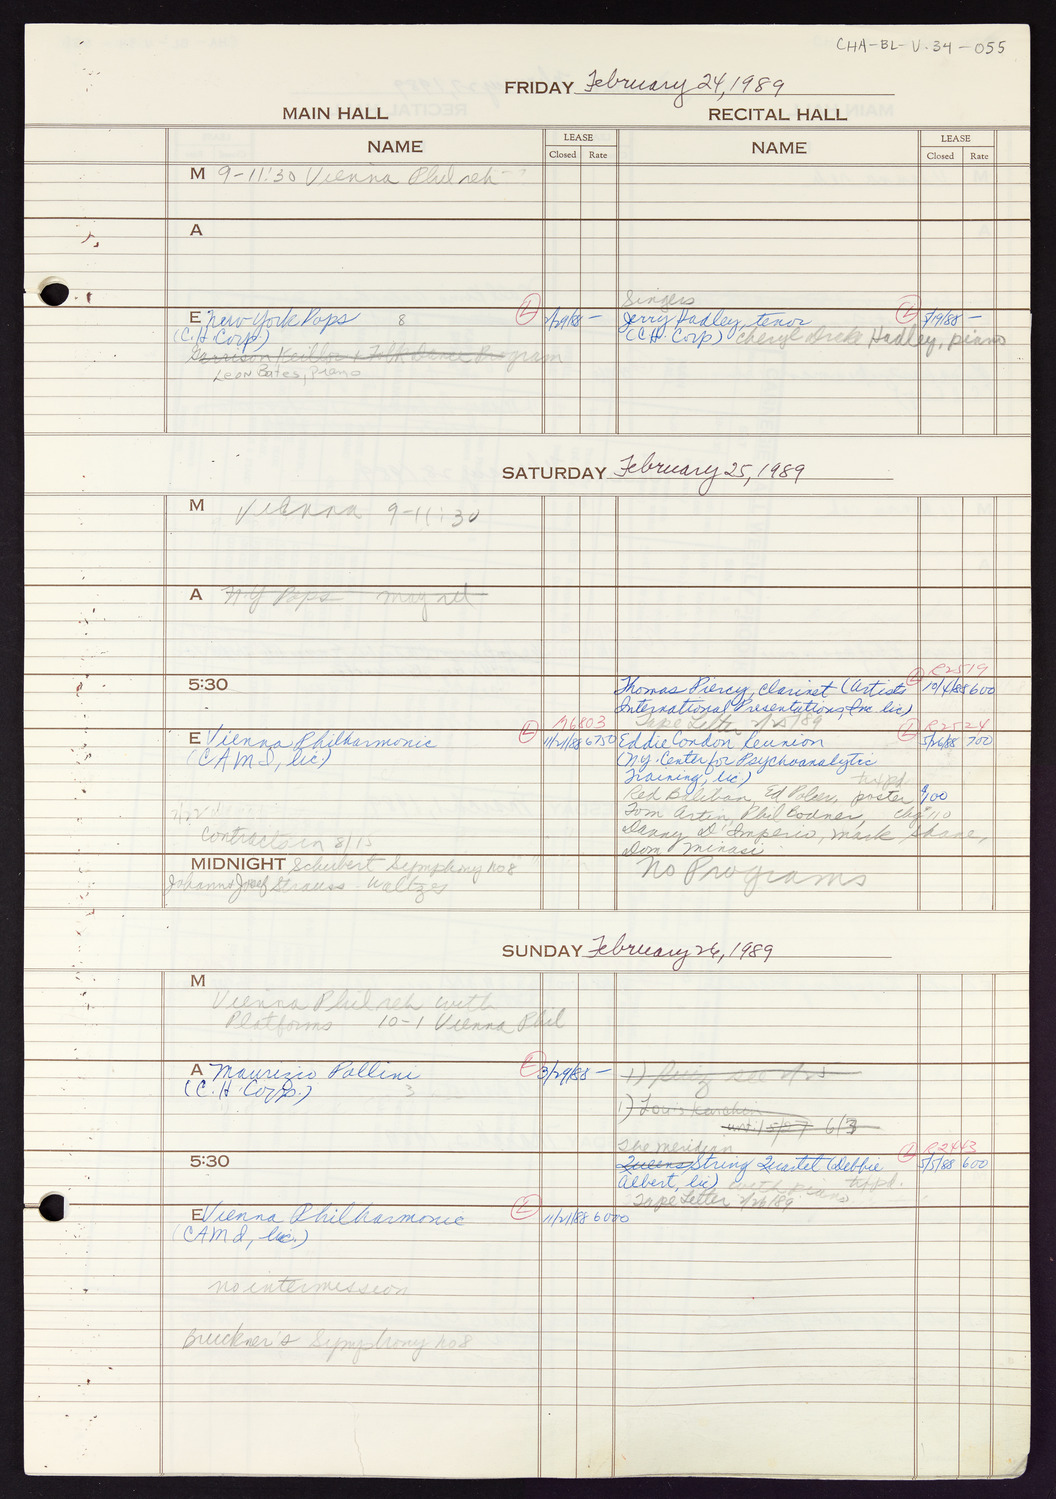 CHA-BL-V-34-055
FRIDAY February 24, 1989
MAIN HALL
RECITAL HALL
NAME
LEASE
Closed Rate
NAME
LEASE
Closed Rate
M 9-11:30 Vienna Phil reh
A
Singers
E New York Pops 8 L 3/29/88 –
(C.H. Corp)
Garrison Keillor & Folk Dance Program
Leon Bates, Piano
Jerry Hadley, tenor L –
(CCH. Corp) Cheryl Drake Hadley, piano
SATURDAY February 25, 1989
M Vienna 9-11:30
A N.Y Pops may reh
5:30
R2519
Thomas Piercy, Clarinet (Artists L 10/4/88 600
International Presentations, Inc lic)
Tape Letter 2/25/89
M6803
E Vienna Philharmonic L 11/21/88 6750
(CAMI, lic)
R2524
Eddie Condon Reunion L 5/26/88 700
(N.Y. Center for Psychoanalytic
Training, lic)
Red Balaban, Ed Polcer, poster $100
Tom Artin, Phil Bodner, chg 110
Danny D'Imperio, Mark Shane,
Dom Minasi
No Programs
Contracts in 8/15
MIDNIGHT Schubert Symphony No 8
Johann & Josef Strauss - Waltzes
SUNDAY February 26, 1989
M
Vienna Phil reh with
Platforms 10-1 Vienna Phil
A Maurizio Pollini L 3/29/88 –
(C.H. Corp.) 3
1) Ruiz see
1) Louis Karchin
6/3
5:30
The Meridian
R2443
Queens String Quartet (Debbie L 5/5/88 600
Albert, lic) with piano
Tape Letter 2/26/89
E Vienna Philharmonic L 11/21/88 6000
(CAMI, lic.)
no intermission
Bruckner's Symphony No 8